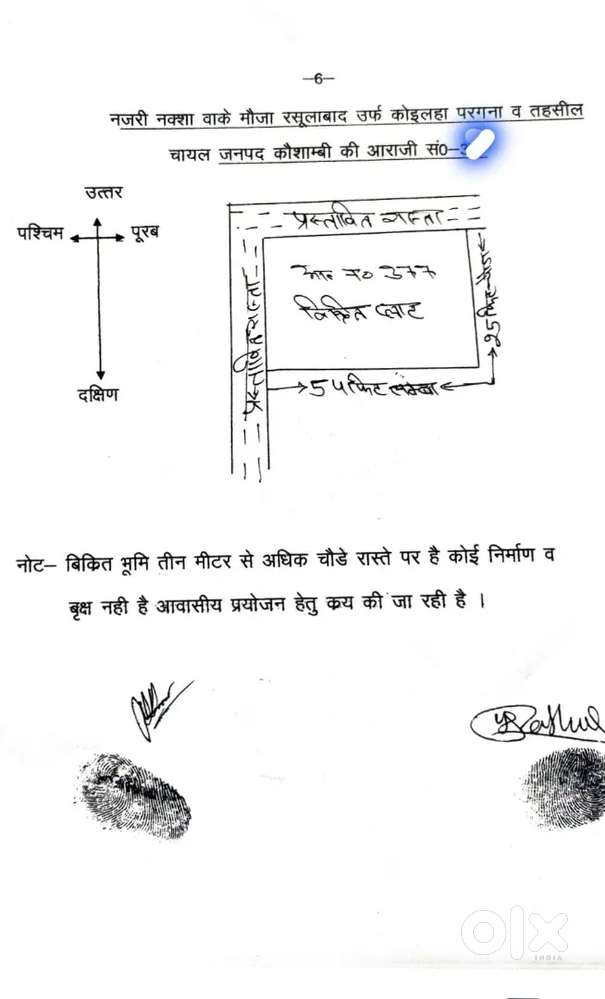 –6–
नजरी नक्शा वाके मौजा रसूलाबाद उर्फ कोइलहा परगना व तहसील
चायल जनपद कौशाम्बी की आराजी सं0–3
उत्तर
पश्चिम
पूरब
दक्षिण
प्रस्तावित रास्ता
प्रस्तावित रास्ता
आ० न० 377
विक्रित प्लाट
25 फिट चौडा
54 फिट लम्बा
नोट– बिकित भूमि तीन मीटर से अधिक चौडे रास्ते पर है कोई निर्माण व
बृक्ष नही है आवासीय प्रयोजन हेतु क्रय की जा रही है ।
olx
INDIA